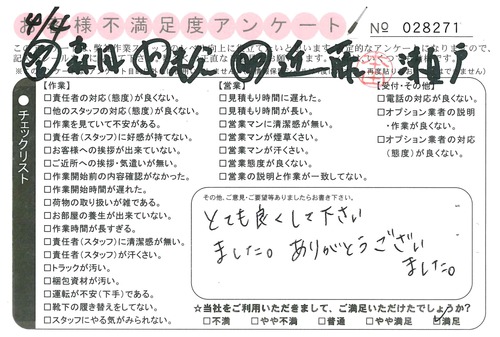 お客様不満足度アンケート
No 028271
4/4
近藤 瀬戸
チェックリスト
【作業】
□責任者の対応(態度)が良くない。
□他のスタッフの対応(態度)が良くない。
□作業を見ていて不安がある。
□責任者(スタッフ)に好感が持てない。
□お客様への挨拶が出来ていない。
□ご近所への挨拶・気遣いが無い。
□作業開始前の内容確認がなかった。
□作業開始時間が遅れた。
□荷物の取り扱いが雑である。
□お部屋の養生が出来ていない。
□作業時間が長すぎる。
□責任者(スタッフ)に清潔感が無い。
□責任者(スタッフ)が汗くさい。
□トラックが汚い。
□梱包資材が汚い。
□運転が不安(下手)である。
□靴下の履き替えをしてない。
□スタッフにやる気がみられない。
【営業】
□見積もり時間に遅れた。
□見積もり時間が長い。
□営業マンに清潔感が無い。
□営業マンが煙草くさい。
□営業マンが汗くさい。
□営業態度が良くない。
□営業の説明と作業が一致してない。
【受付・その他】
□電話の対応が良くない。
□オプション業者の説明
・作業が良くない。
□オプション業者の対応
(態度)が良くない。
その他、ご意見・ご要望等ありましたらお書き下さい。
とても良くして下さい
ました。ありがとうござい
ました。
☆当社をご利用いただきまして、ご満足いただけたでしょうか?
□不満 □やや不満 □普通 □やや満足 □満足